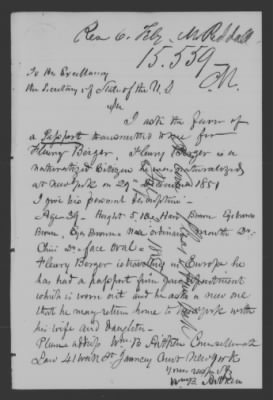 Rec 6. Feby
15.559
To His Excellency
the Secretary of State of the U S
Sir
I ask the favor of
a Passport transmitted to me for
Henry Berger. Henry Berger is a
naturalized Citizen he was naturalized
at New York on 29 1851
I give his personal description.
Age 29. Height 5,10 Hair Brown
Brow, Eyes Brown ordinary mouth do
Chin do face oval.
Henry Berger is travelling in Europe he
has had a passport from Department
which is worn out and he asks a new one
that he may return home to New York with
his wife and Daughter.
Please address Wm B Aitken Counsellor at
Law 41 Wall St Jauncey Court New York
Yours resp
Wm B Aitken